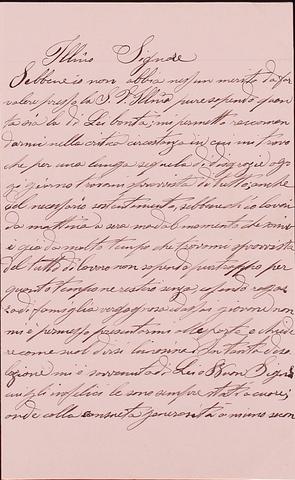 Illmo Signore
Sebbene io non abbia nessun merito da far
valere presso la S. V. Illma pure sapendo quan
ta sia la di Lei bontà; mi permetto raccoman
darmi nella critica circostanza in cui mi trovo
che per una lunga sequela di disgrazie og
gi giorno trovomi sprovvista di tutto, anche
del necessario sostentamento, sebbene che io lavori
da mattina a sera ma dal momento che
è già da molto tempo che trovomi sprovvista
del tutto di lavoro non sapendo purtroppo per
quanto tempo ne resterò senza, essendo ragaz
za di famiglia vergognosa ed assai giovine non
mi è permesso presentarmi alle porte e chiede
re come suol dirsi In tanta deso
lazione mi è sovvenuto di Lei o Buon Signore
cui gli infelici le sono sempre stati a cuore,
onde colla consueta generosità a mano